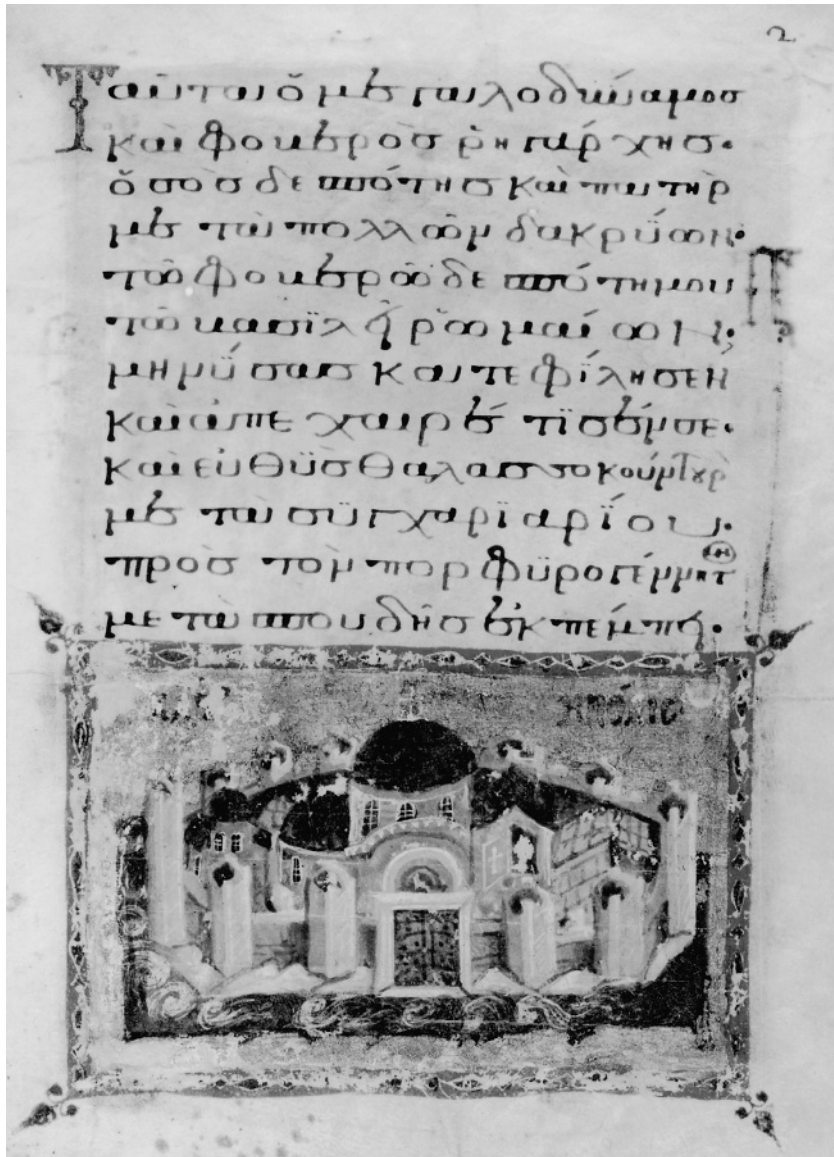 2
Ταῦτα ὁ μεγαλοδύναμος
καὶ φοβερὸς ῥηγάρχης·
ὁ σὸς δεσπότης καὶ πατὴρ
μετὰ πολλῶν δακρύων·
τῶ φοβερῶ δεσπότη μου
τῶ βασϊλῆ ῥωμαίων·
μηνύσας κατεφίλησεν
καὶ ἀπεχαιρέτϊσέν σε·
καὶ εὐθῢς θαλασσοκούντουρ
μετὰ σϋγχαρϊαρίου·
πρὸς τὸν πορφϋρογέννητ
μετὰ σπουδῆς ἐκπέμπει·